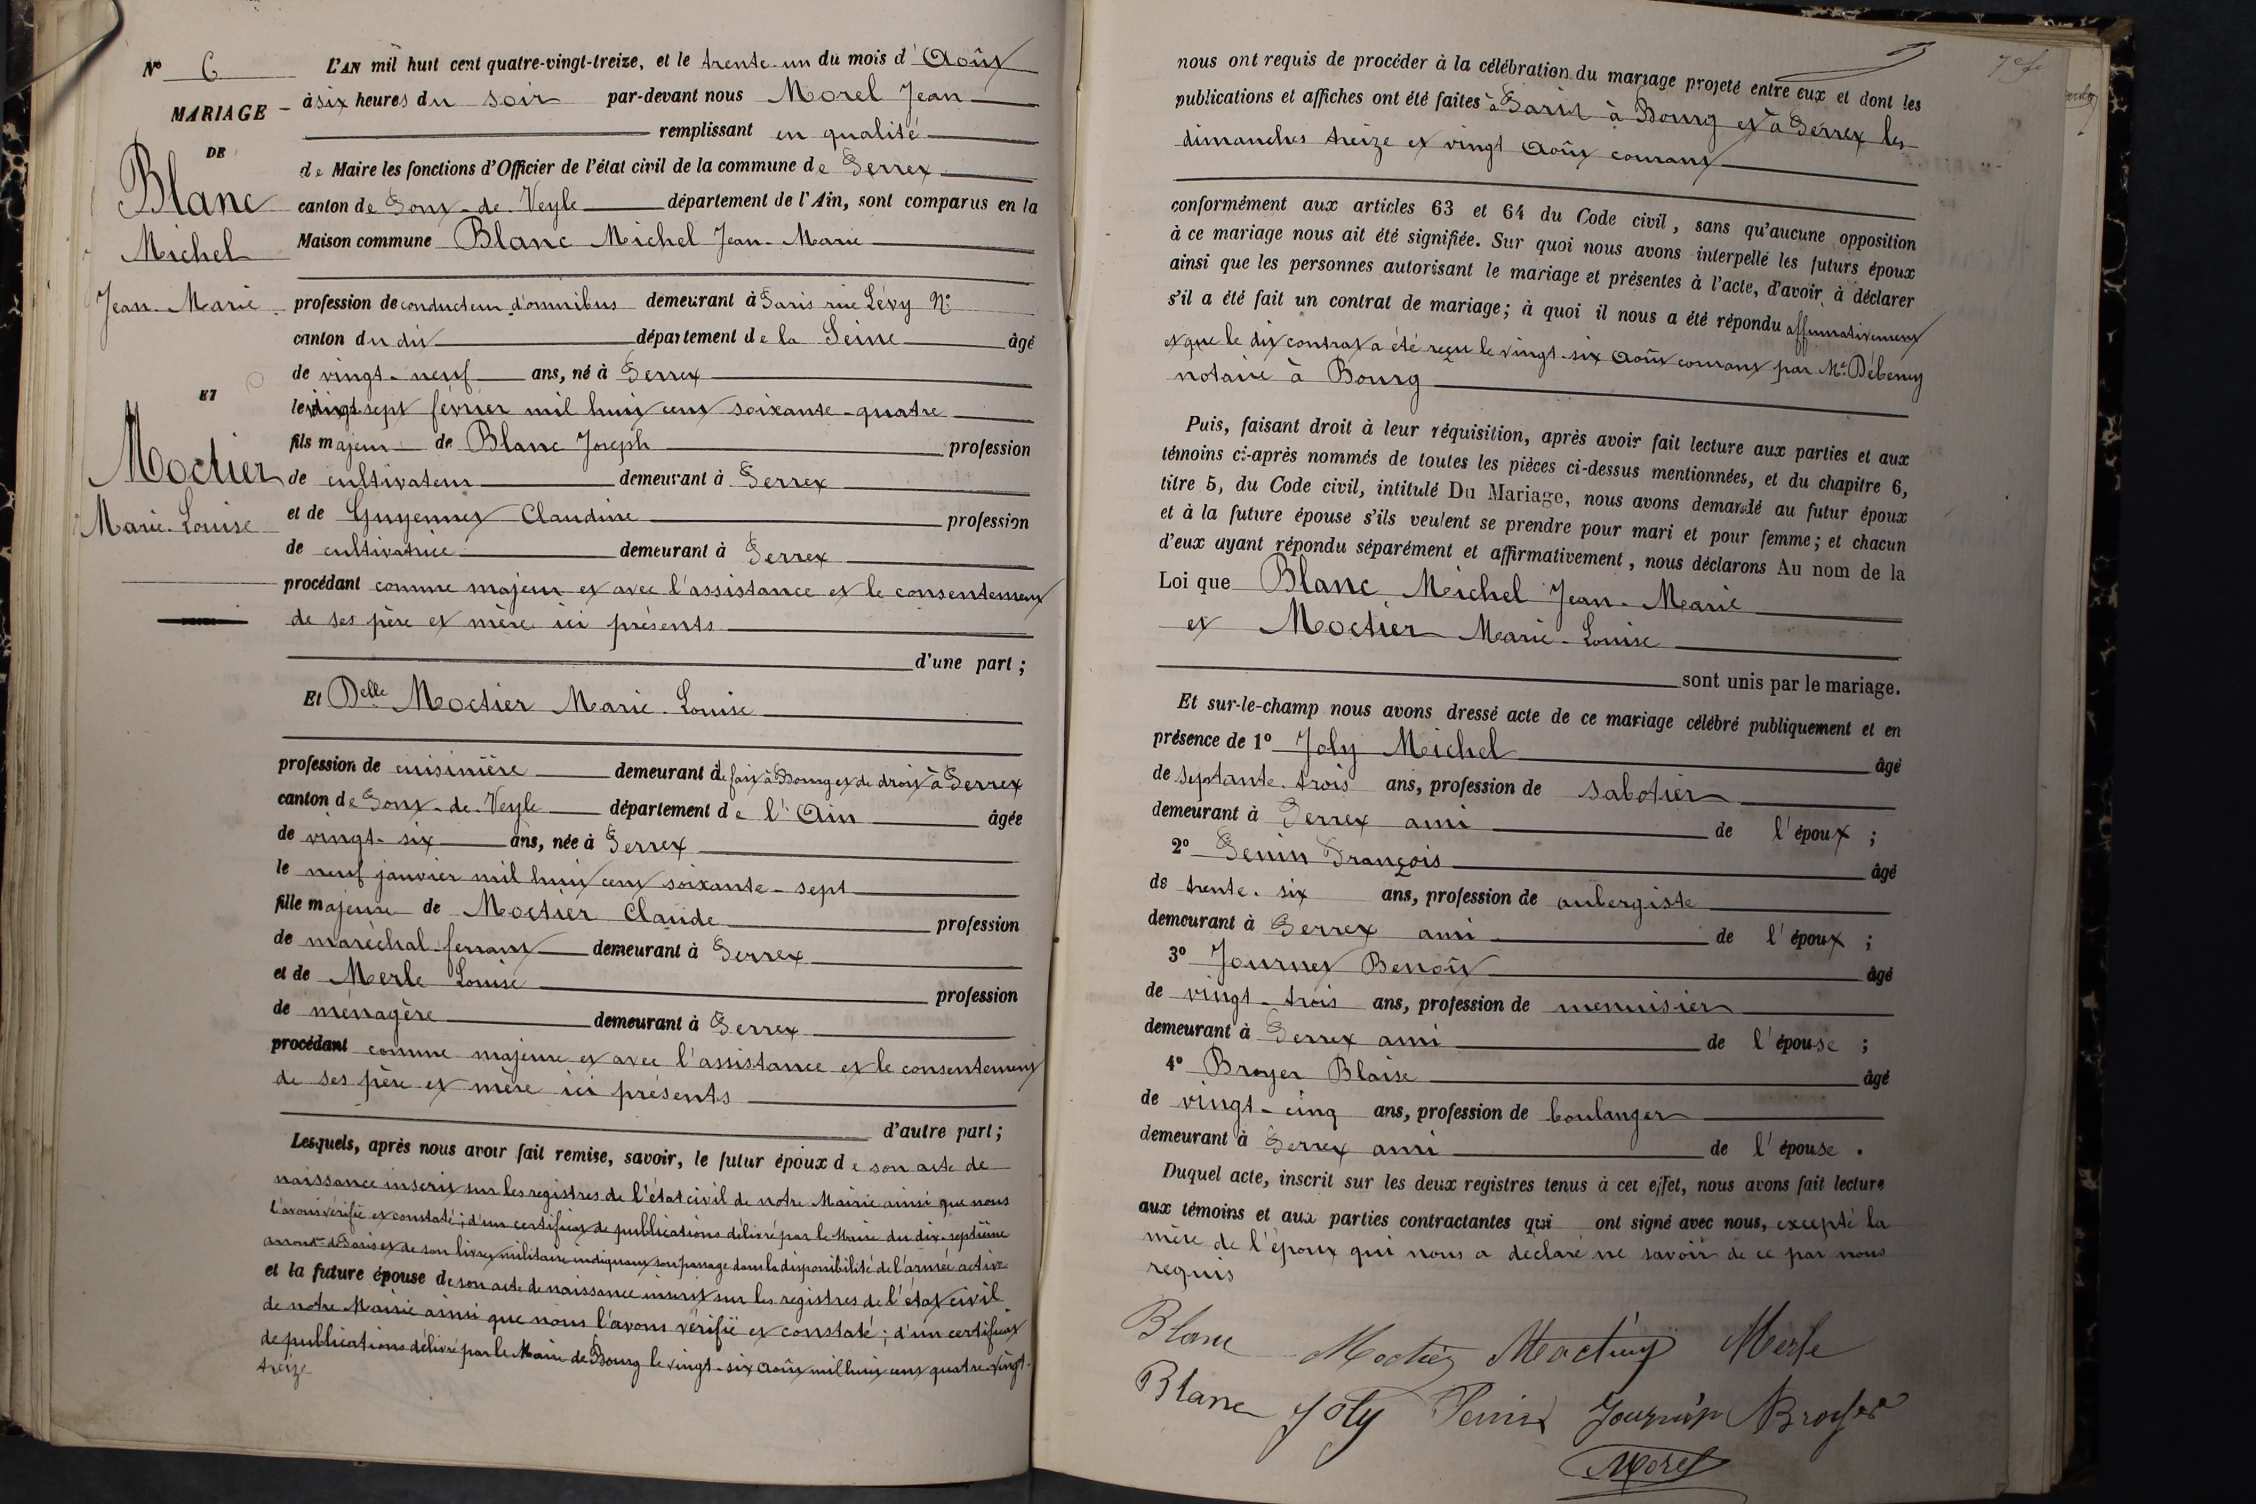 N° 6
MARIAGE
DE
Blanc
Michel
Jean-Marie
ET
Moctier
Marie-Louise
L'AN mil huit cent quatre-vingt-treize, et le trente-un du mois d'Août
à six heures du soir par-devant nous Morel Jean
remplissant en qualité
de Maire les fonctions d'Officier de l'état civil de la commune de Perrex
canton de Pont-de-Veyle département de l'Ain, sont comparus en la
Maison commune Blanc Michel Jean-Marie
profession de conducteur d'omnibus demeurant à Paris rue Lévy N°
canton du dit département de la Seine âgé
de vingt-neuf ans, né à Perrex
le vingt sept février mil huit cent soixante-quatre
fils majeur de Blanc Joseph profession
de cultivateur demeurant à Perrex
et de Guyennet Claudine profession
de cultivatrice demeurant à Perrex
procédant comme majeur et avec l'assistance et le consentement
de ses père et mère ici présents
d'une part ;
Et Delle Moctier Marie-Louise
profession de cuisinière demeurant de fait à Bourg et de droit à Perrex
canton de Pont-de-Veyle département de l'Ain âgée
de vingt-six ans, née à Perrex
le neuf janvier mil huit cent soixante-sept
fille majeure de Moctier Claude profession
de maréchal-ferrant demeurant à Perrex
et de Merle Louise profession
de ménagère demeurant à Perrex
procédant comme majeure et avec l'assistance et le consentement
de ses père et mère ici présents
d'autre part ;
Lesquels, après nous avoir fait remise, savoir, le futur époux de son acte de
naissance inscrit sur les registres de l'état civil de notre Mairie ainsi que nous
l'avons vérifié et constaté ; d'un certificat de publications délivré par le Maire du dix-septième
arront de Paris et de son livret militaire indiquant son passage dans la disponibilité de l'armée active
et la future épouse de son acte de naissance inscrit sur les registres de l'état civil
de notre Mairie ainsi que nous l'avons vérifié et constaté ; d'un certificat
de publications délivré par le Maire de Bourg le vingt-six août mil huit cent quatre-vingt-
treize
nous ont requis de procéder à la célébration du mariage projeté entre eux et dont les
publications et affiches ont été faites à Paris à Bourg et à Perrex les
dimanches treize et vingt Août courant
conformément aux articles 63 et 64 du Code civil, sans qu'aucune opposition
à ce mariage nous ait été signifiée. Sur quoi nous avons interpellé les futurs époux
ainsi que les personnes autorisant le mariage et présentes à l'acte, d'avoir à déclarer
s'il a été fait un contrat de mariage ; à quoi il nous a été répondu affirmativement
et que le dit contrat a été reçu le vingt-six Août courant par Me Débeney
notaire à Bourg
Puis, faisant droit à leur réquisition, après avoir fait lecture aux parties et aux
témoins ci-après nommés de toutes les pièces ci-dessus mentionnées, et du chapitre 6,
titre 5, du Code civil, intitulé Du Mariage, nous avons demandé au futur époux
et à la future épouse s'ils veulent se prendre pour mari et pour femme ; et chacun
d'eux ayant répondu séparément et affirmativement, nous déclarons Au nom de la
Loi que Blanc Michel Jean-Marie
et Moctier Marie-Louise
sont unis par le mariage.
Et sur-le-champ nous avons dressé acte de ce mariage célébré publiquement et en
présence de 1° Joly Michel âgé
de septante-trois ans, profession de sabotier
demeurant à Perrex ami de l'époux ;
2° Penin François âgé
de trente-six ans, profession de aubergiste
demeurant à Perrex ami de l'époux ;
3° Journet Benoît âgé
de vingt-trois ans, profession de menuisier
demeurant à Perrex ami de l'épouse ;
4° Broyer Blaise âgé
de vingt-cinq ans, profession de boulanger
demeurant à Perrex ami de l'épouse.
Duquel acte, inscrit sur les deux registres tenus à cet effet, nous avons fait lecture
aux témoins et aux parties contractantes qui ont signé avec nous, excepté la
mère de l'époux qui nous a déclaré ne savoir de ce par nous
requis
Blanc Moctier Moctier Merle
Blanc Joly Penin Journet Broyer
Morel